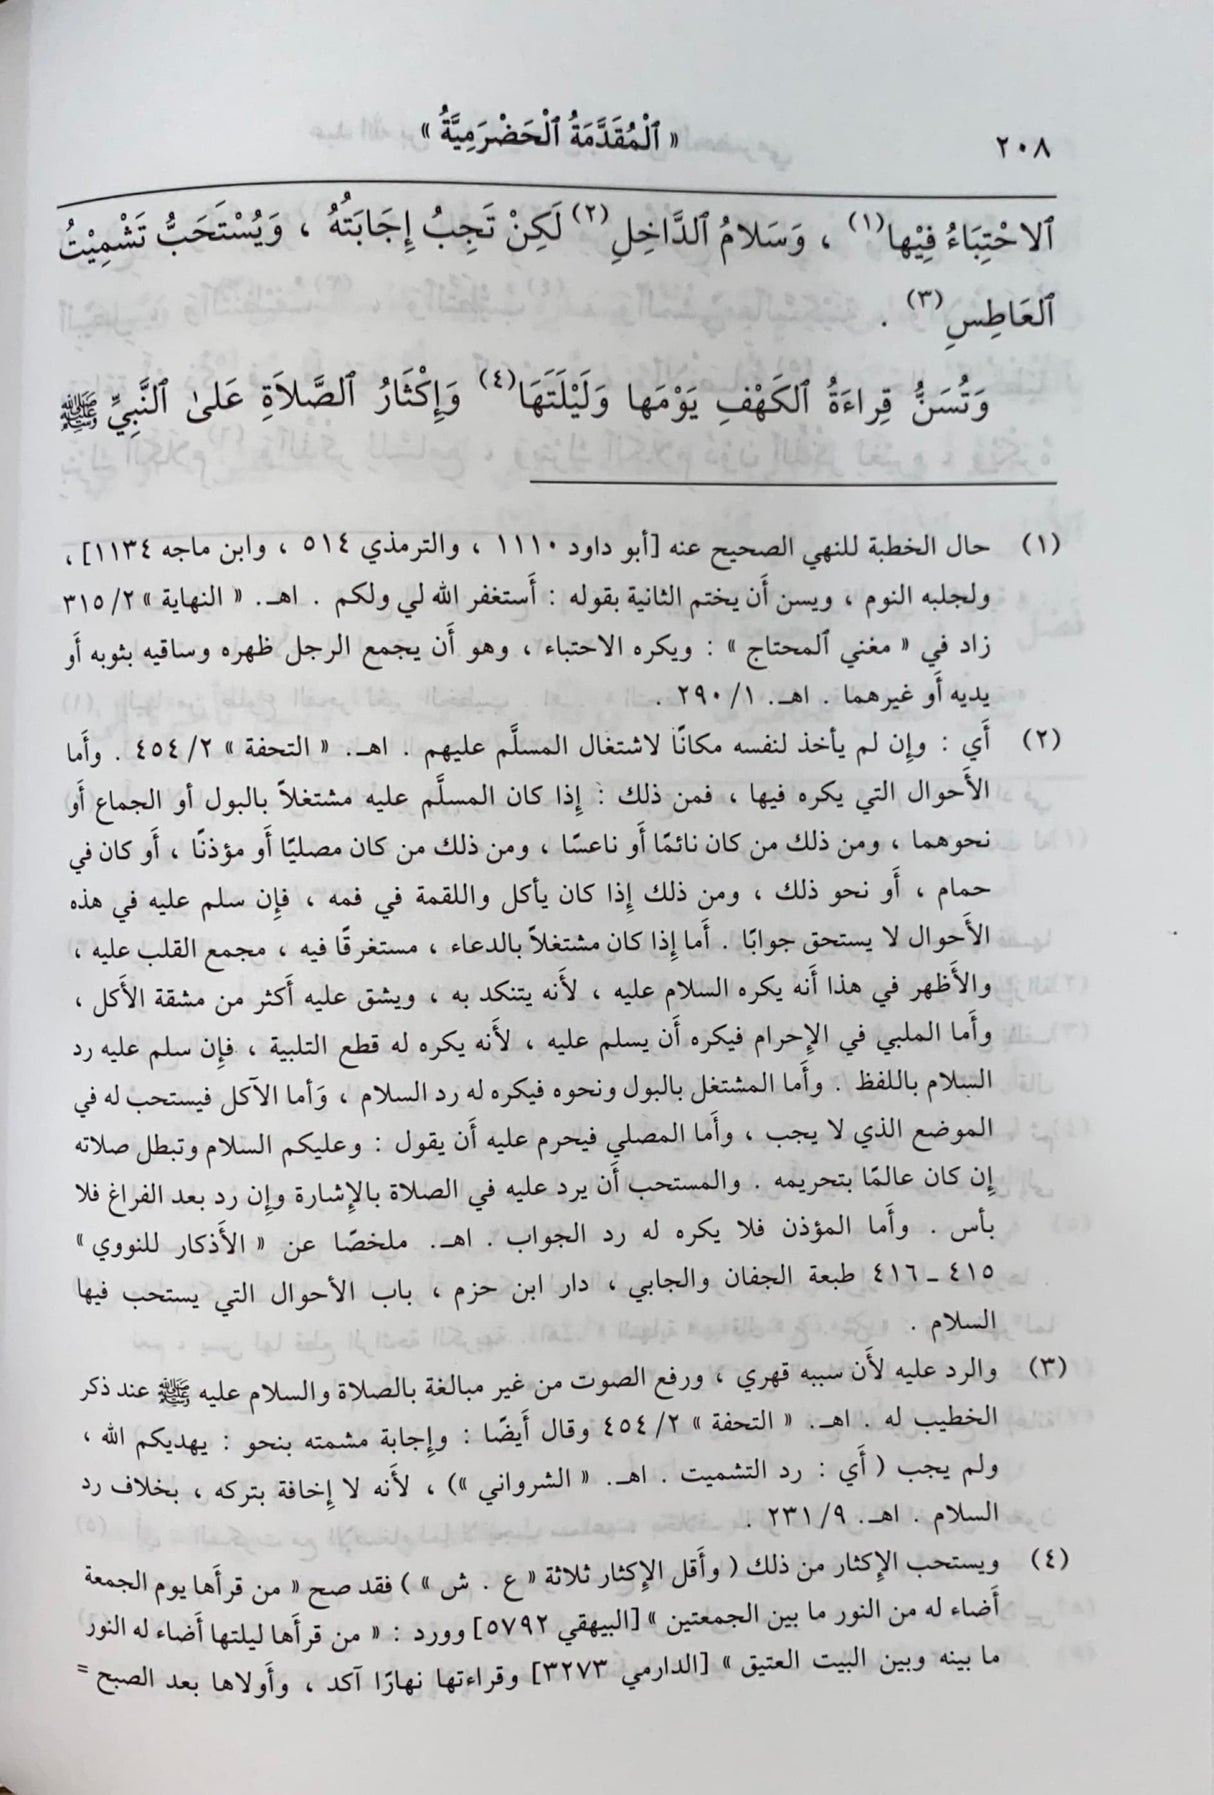 ٢٠٨ « ٱلْمُقَدَّمَةُ ٱلْحَضْرَمِيَّةُ »
ٱلاحْتِبَاءُ فِيْها(١) ، وَسَلامُ ٱلدَّاخِلِ(٢) لَكِنْ تَجِبُ إِجَابَتُهُ ، وَيُسْتَحَبُّ تَشْمِيْتُ
ٱلعَاطِسِ(٣) .
وَتُسَنُّ قِراءَةُ ٱلكَهْفِ يَوْمَها وَلَيْلَتَهَا(٤) وَإِكْثَارُ ٱلصَّلاَةِ عَلىٰ ٱلنَّبِيِّ ﷺ
(١) حال الخطبة للنهي الصحيح عنه [أبو داود ١١١٠ ، والترمذي ٥١٤ ، وابن ماجه ١١٣٤] ،
ولجلبه النوم ، ويسن أَن يختم الثانية بقوله : أَستغفر الله لي ولكم . اهـ. « النهاية » ٣١٥/٢
زاد في « مغني ٱلمحتاج » : ويكره الاحتباء ، وهو أَن يجمع الرجل ظهره وساقيه بثوبه أَو
يديه أَو غيرهما . اهـ. ٢٩٠/١ .
(٢) أَي : وإِن لم يأخذ لنفسه مكانًا لاشتغال المسلَّم عليهم . اهـ. « التحفة » ٤٥٤/٢ . وأَما
الأَحوال التي يكره فيها ، فمن ذلك : إِذا كان المسلَّم عليه مشتغلاً بالبول أو الجماع أَو
نحوهما ، ومن ذلك من كان نائمًا أَو ناعسًا ، ومن ذلك من كان مصليًا أَو مؤذنًا ، أَو كان في
حمام ، أَو نحو ذلك ، ومن ذلك إِذا كان يأكل واللقمة في فمه ، فإِن سلم عليه في هذه
الأَحوال لا يستحق جوابًا . أَما إِذا كان مشتغلاً بالدعاء ، مستغرقًا فيه ، مجمع القلب عليه ،
والأَظهر في هذا أَنه يكره السلام عليه ، لأَنه يتنكد به ، ويشق عليه أَكثر من مشقة الأَكل ،
وأَما الملبي في الإِحرام فيكره أَن يسلم عليه ، لأَنه يكره له قطع التلبية ، فإِن سلم عليه رد
السلام باللفظ . وأَما المشتغل بالبول ونحوه فيكره له رد السلام ، وَأما الآكل فيستحب له في
الموضع الذي لا يجب ، وأَما المصلي فيحرم عليه أَن يقول : وعليكم السلام وتبطل صلاته
إِن كان عالمًا بتحريمه . والمستحب أَن يرد عليه في الصلاة بالإِشارة وإِن رد بعد الفراغ فلا
بأس . وأَما المؤذن فلا يكره له رد الجواب . اهـ. ملخصًا عن « الأَذكار للنووي »
٤١٥ ـ ٤١٦ طبعة الجفان والجابي ، دار ابن حزم ، باب الأحوال التي يستحب فيها
السلام .
(٣) والرد عليه لأَن سببه قهري ، ورفع الصوت من غير مبالغة بالصلاة والسلام عليه ﷺ عند ذكر
الخطيب له . اهـ. « التحفة » ٤٥٤/٢ وقال أَيضًا : وإِجابة مشمته بنحو : يهديكم الله ،
ولم يجب ( أَي : رد التشميت . اهـ. « الشرواني ») ، لأَنه لا إِخافة بتركه ، بخلاف رد
السلام . اهـ. ٢٣١/٩ .
(٤) ويستحب الإِكثار من ذلك ( وأَقل الإِكثار ثلاثة « ع . ش » ) فقد صح « من قرأَها يوم الجمعة
أَضاء له من النور ما بين الجمعتين » [البيهقي ٥٧٩٢] وورد : « من قرأَها ليلتها أَضاء له النور
ما بينه وبين البيت العتيق » [الدارمي ٣٢٧٣] وقراءتها نهارًا آكد ، وأَولاها بعد الصبح =